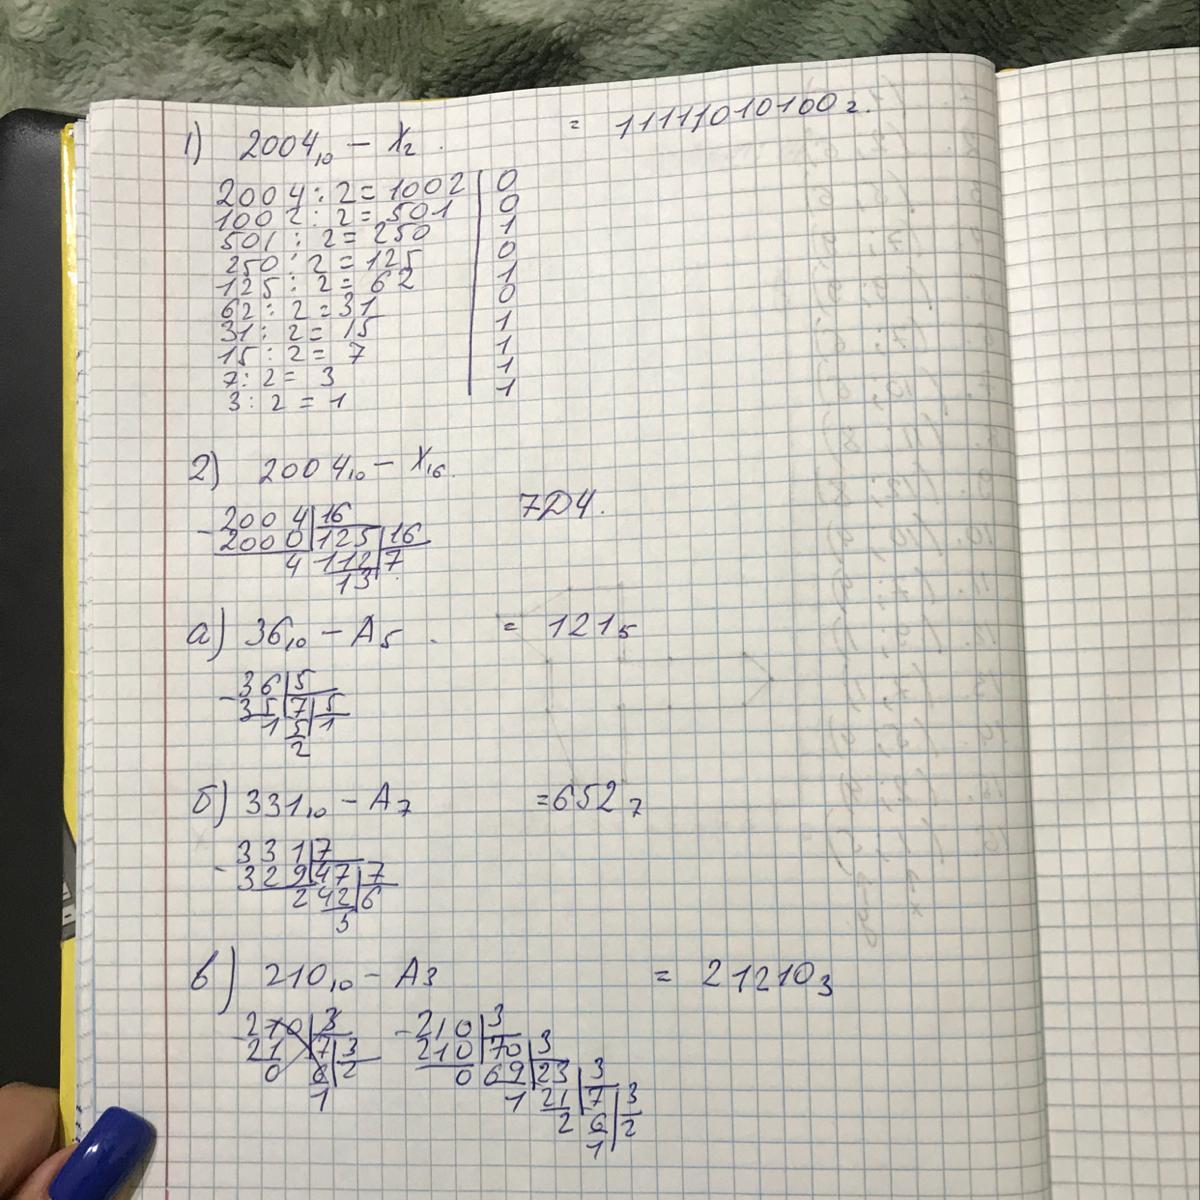 1) 2004₁₀ – X₂. = 11111010100₂.
2004 : 2 = 1002 | 0
1002 : 2 = 501 | 0
501 : 2 = 250 | 1
250 : 2 = 125 | 0
125 : 2 = 62 | 1
62 : 2 = 31 | 0
31 : 2 = 15 | 1
15 : 2 = 7 | 1
7 : 2 = 3 | 1
3 : 2 = 1 | 1
2) 2004₁₀ – X₁₆.
7D4.
-2004 | 16
2000 | 125 | 16
4 112 | 7
13
а) 36₁₀ – A₅. = 121₅
-36 | 5
35 | 7 | 5
1 5 | 1
2
б) 331₁₀ – A₇ = 652₇
-331 | 7
329 | 47 | 7
2 42 | 6
5
в) 210₁₀ – A3 = 21210₃
-210 | 3 -210 | 3
21 | 7 | 3 210 | 70 | 3
0 6 | 2 0 69 | 23 | 3
1 1 21 | 7 | 3
2 6 | 2
1